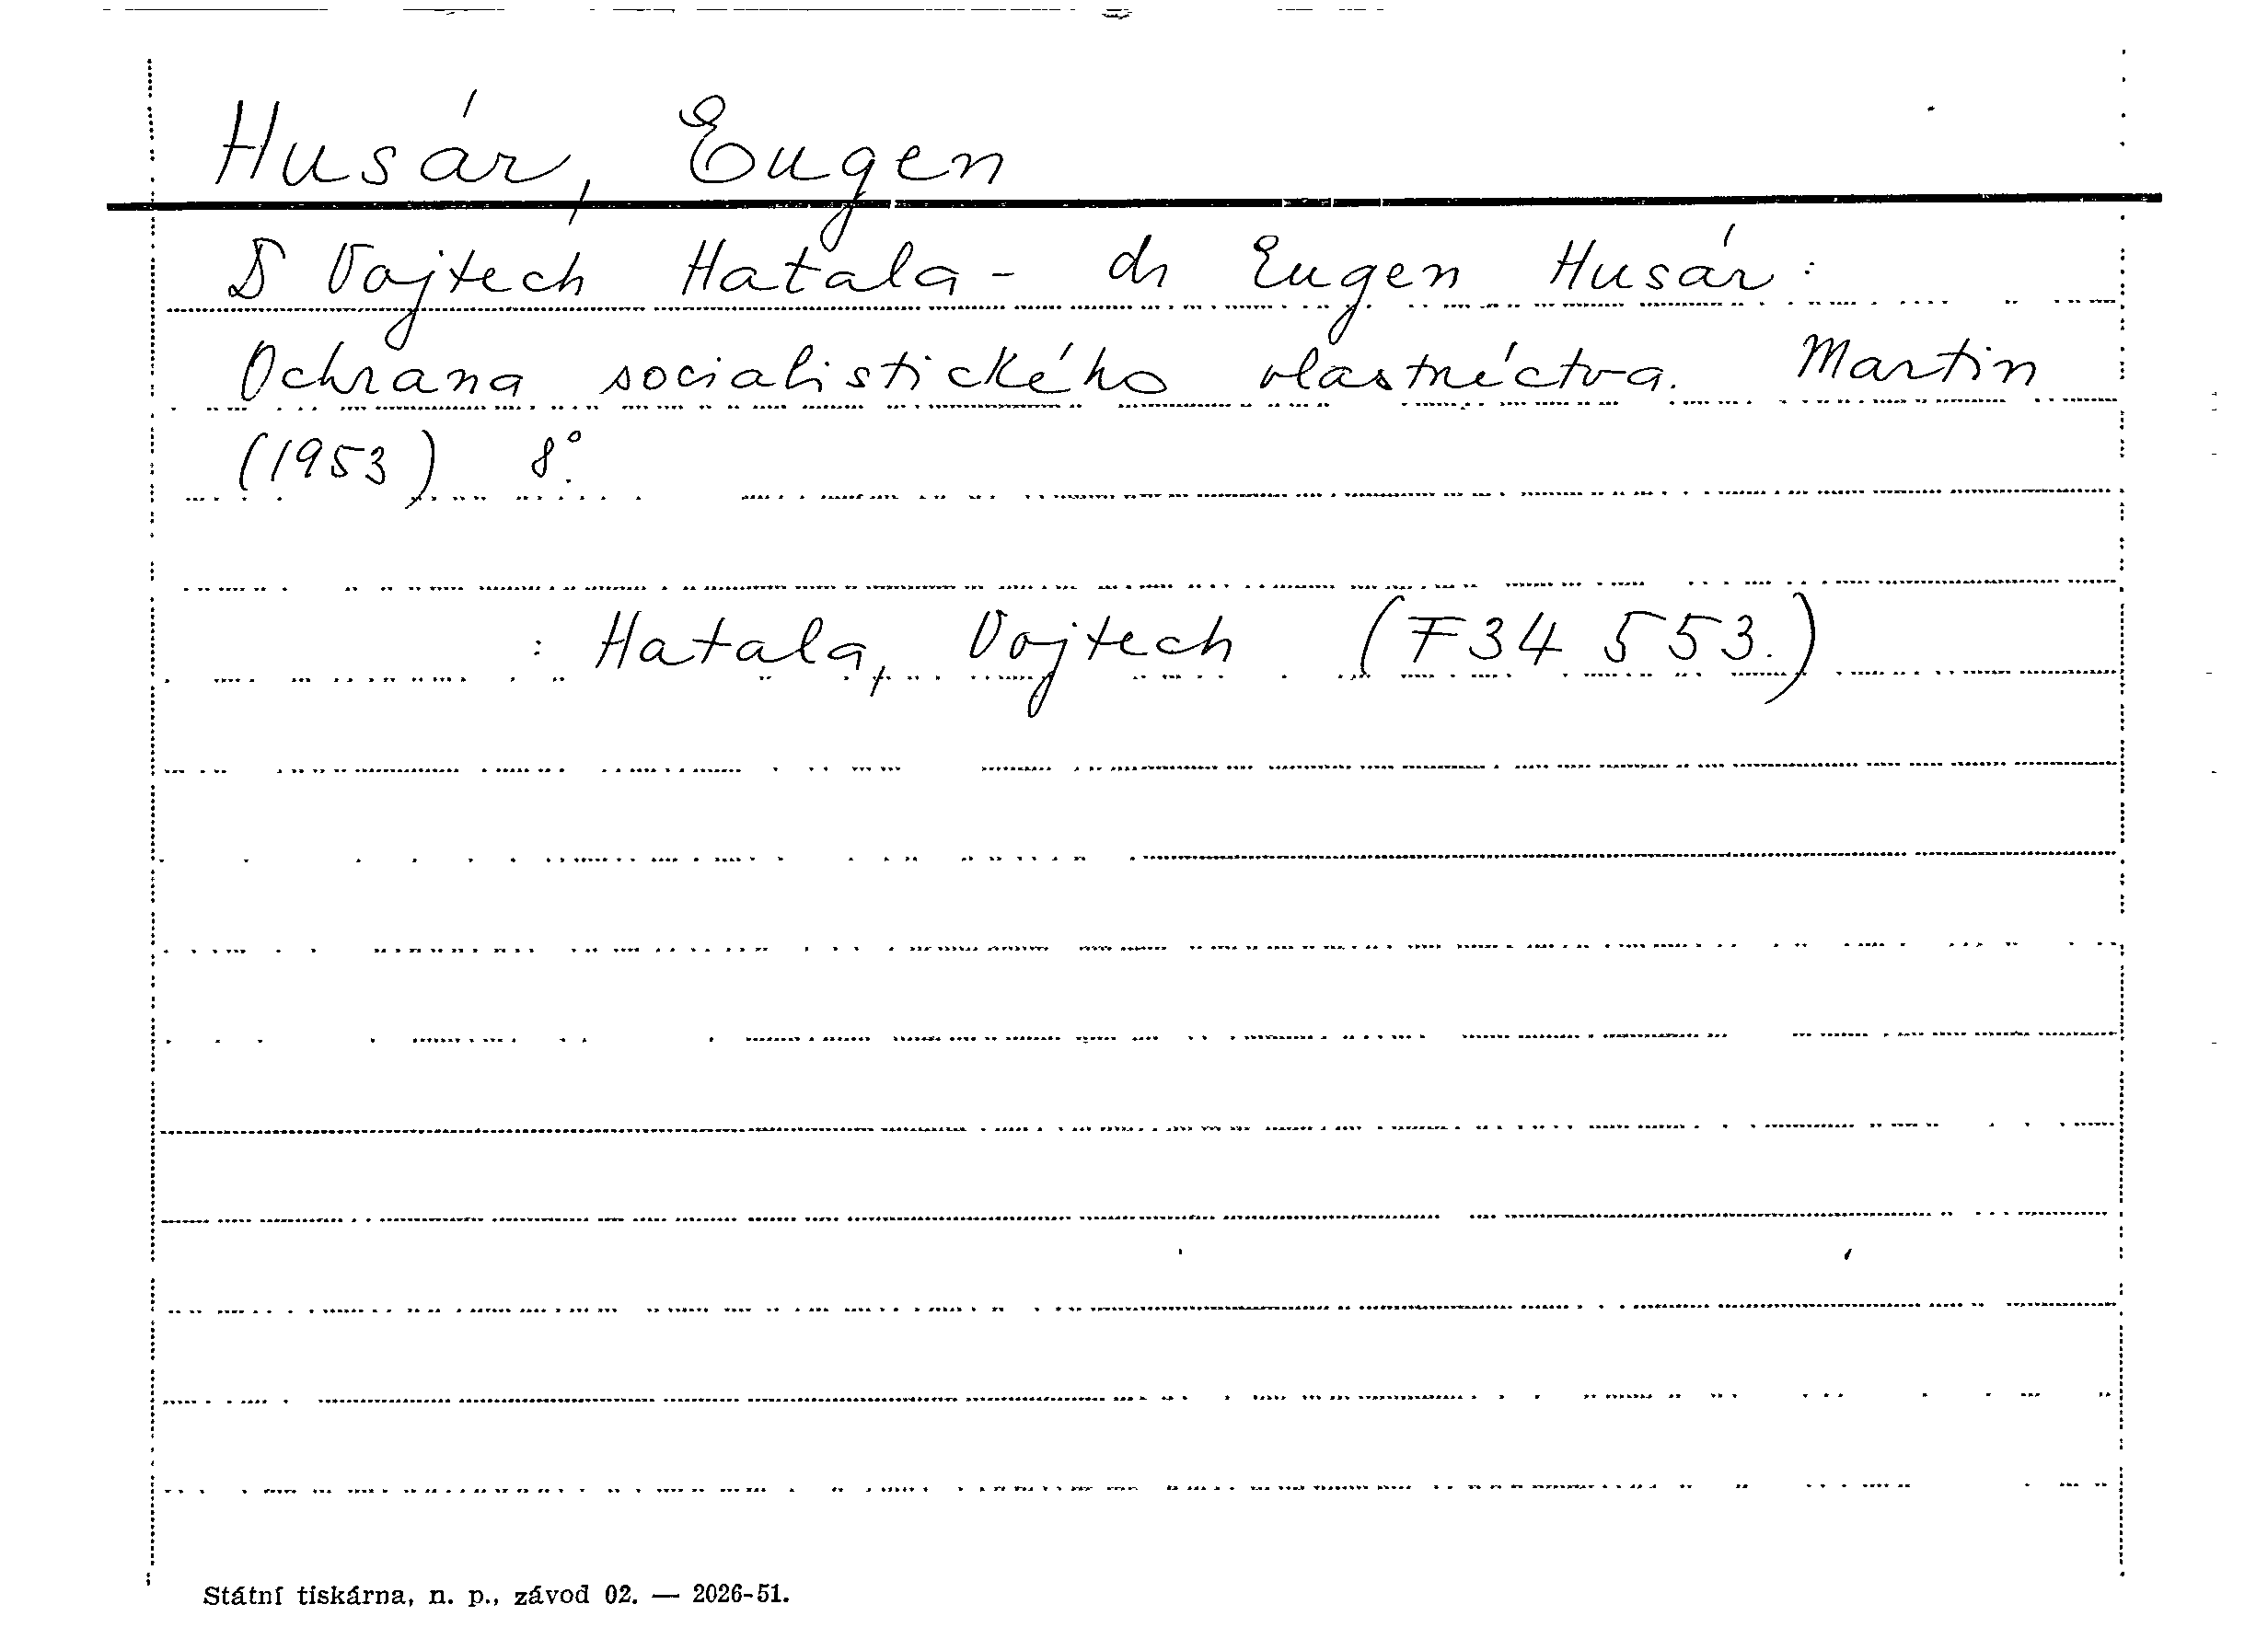 Husár, Eugen
D Vojtech Hatala - dr Eugen Husár:
Ochrana socialistického vlastníctva. Martin
(1953) 8°.
: Hatala, Vojtech (F34 553.)
Státní tiskárna, n. p., závod 02. — 2026-51.